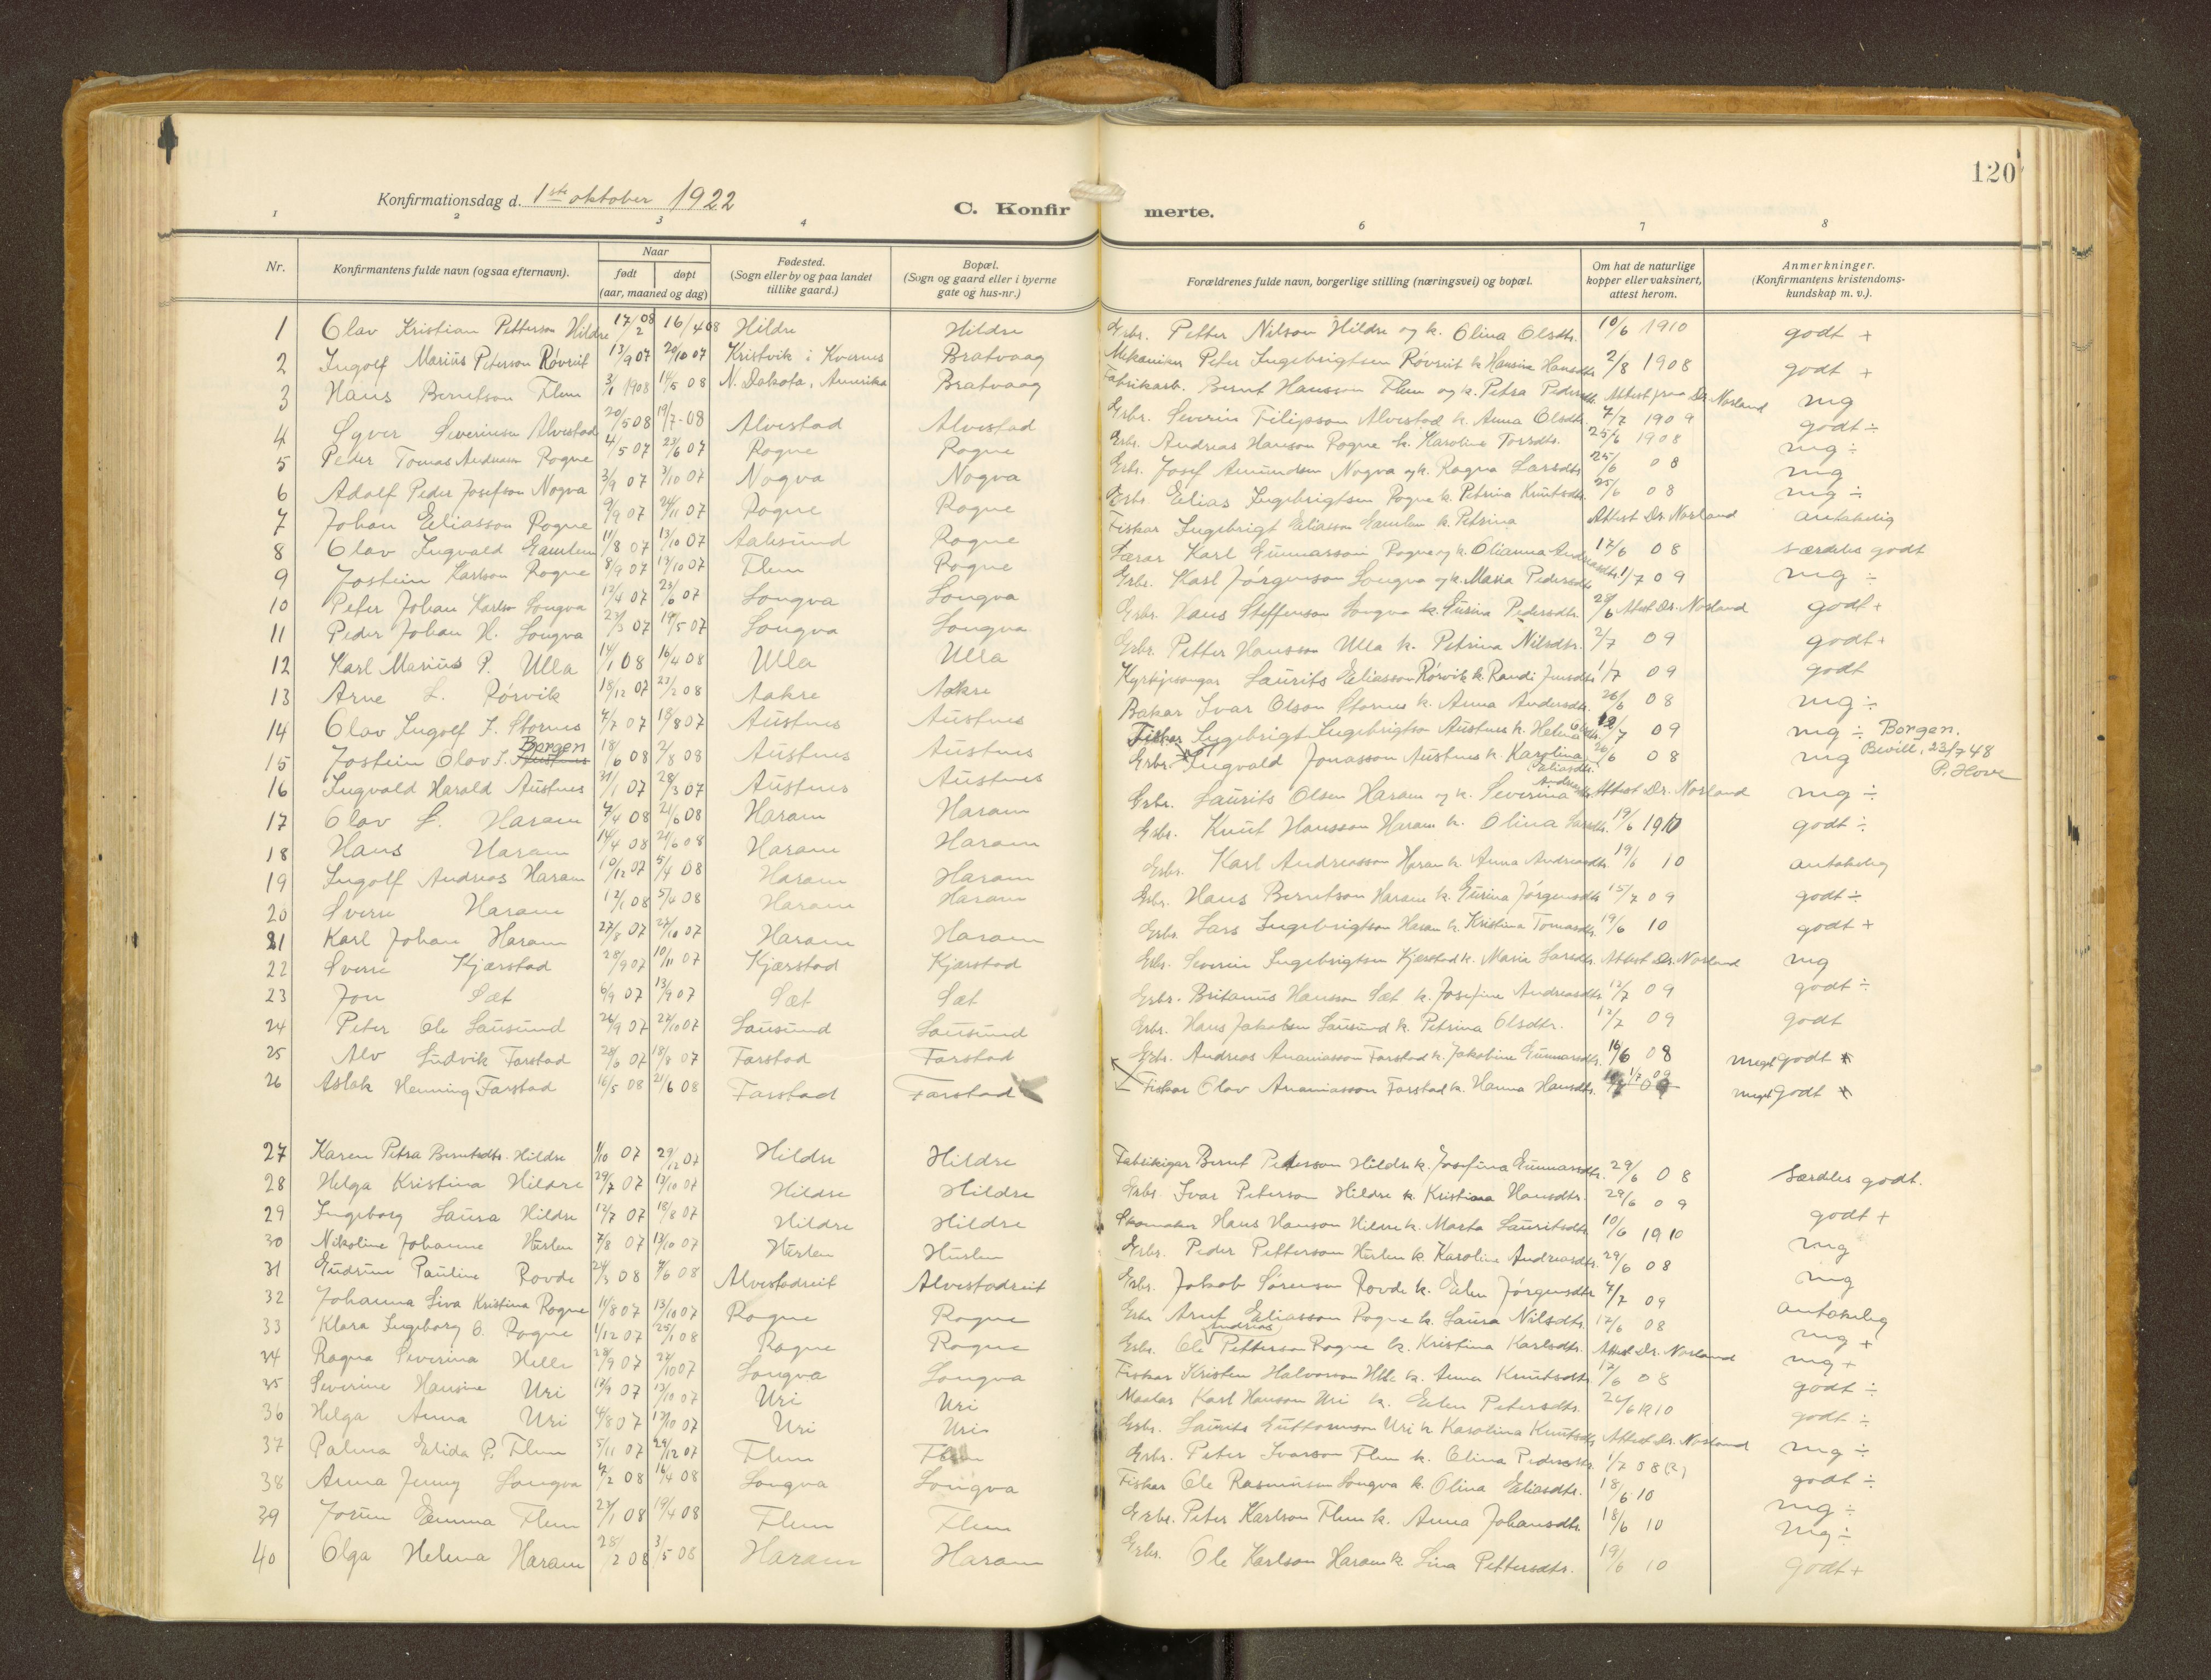 120
Konfirmationsdag d. 1ste oktober 1922
C. Konfirmerte.
1 2 3 4 6 7 8
Nr. Konfirmantens fulde navn (ogsaa efternavn). Naar født døpt (aar, maaned og dag) Fødested. (Sogn eller by og paa landet tillike gaard.) Bopæl. (Sogn og gaard eller i byerne gate og hus-nr.) Forældrenes fulde navn, borgerlige stilling (næringsvei) og bopæl. Om hat de naturlige kopper eller vaksinert, attest herom. Anmerkninger. (Konfirmantens kristendomskundskap m. v.).
1 Olav Kristian Petterson Hildre 17/2 08 16/4 08 Hildre Hildre Grbr. Petter Nilson Hildre og k. Olina Olsdtr. 10/6 1910 godt +
2 Ingolf Marius Peterson Røvreit 13/9 07 20/10 07 Kristvik i Kvernes Bratvaag Mekaniker Peter Ingebrigtsen Røvreit k. Hansine Hansdtr. 2/8 1908 godt +
3 Hans Berntson Flem 3/1 1908 14/5 08 N. Dakota, Amerika Bratvaag Fabrikarb. Bernt Hansson Flem og k. Petra Pedersdtr. Attest fraa Dr. Norland mg
4 Syver Severinsen Alvestad 20/5 08 19/7 08 Alvestad Alvestad Grbr. Severin Filipson Alvestad k. Anna Olsdtr. 7/7 1909 godt ÷
5 Peder Tomas Andreassen Rogne 4/5 07 23/6 07 Rogne Rogne Grbr. Andreas Hanson Rogne k. Karoline Torsdtr. 25/6 1908 mg ÷
6 Adolf Peder Josefson Nogva 3/9 07 3/10 07 Nogva Nogva Grbr. Josef Amundsen Nogva og k. Ragna Larsdtr. 25/6 08 mg
7 Johan Eliasson Rogne 9/9 07 24/11 07 Rogne Rogne Grbr. Elias Ingebrigtsen Rogne k. Petrina Knutsdtr. 25/6 08 mg ÷
8 Olav Ingvald Gamlem 11/8 07 13/10 07 Aalesund Rogne Fiskar Ingebrigt Eliasson Gamlem k. Petrina Attest Dr. Norland antakelig
9 Jostein Karlson Rogne 8/9 07 13/10 07 Flem Rogne Lærar Karl Gunnarsson Rogne og k. Olianna Andreasdtr. 17/6 08 særdeles godt
10 Peter Johan Karlson Longva 12/4 07 23/6 07 Longva Longva Grbr. Karl Jørgenson Longva og k. Maria Pedersdtr. 1/7 09 mg ÷
11 Peder Johan H. Longva 27/3 07 19/5 07 Longva Longva Grbr. Hans Steffenson Longva k. Gurina Pedersdtr. 28/6 Attest Dr. Norland godt +
12 Karl Marius P. Ulla 14/1 08 16/4 08 Ulla Ulla Grbr. Petter Hansson Ulla k. Petrina Nilsdtr. 2/7 09 godt +
13 Arne L. Rørvik 18/12 07 23/2 08 Aakre Aakre Kyrkjesongar Laurits Eliasson Rørvik k. Randi Jensdtr. 1/7 09 godt
14 Olav Ingolf I. Stornes 4/7 07 18/8 07 Austnes Austnes Bakar Ivar Olson Stornes k. Anna Andersdtr. 26/6 08 mg ÷
15 Jostein Olav I. Austnes Borgen 18/6 08 2/8 08 Austnes Austnes Fiskar Ingebrigt Ingebrigtson Austnes k. Helena 12/7 09 mg ÷ Borgen. Bevill. 23/7 48 P. Hove
16 Ingvald Harald Austnes 31/1 07 28/3 07 Austnes Austnes Grbr. Ingvald Jonasson Austnes k. Karolina Eliasdtr. 26/6 08 mg
17 Olav L. Haram 7/4 08 21/6 08 Haram Haram Grbr. Laurits Olsen Haram og k. Severina Andreasdtr. Attest Dr. Norland mg ÷
18 Hans Haram 14/4 08 21/6 08 Haram Haram Grbr. Knut Hansson Haram k. Olina Larsdtr. 19/6 1910 godt ÷
19 Ingolf Andreas Haram 10/12 07 5/4 08 Haram Haram Grbr. Karl Andreasson Haram k. Anna Andreasdtr. 19/6 10 antakelig
20 Sverre Haram 12/1 08 5/4 08 Haram Haram Grbr. Hans Berntson Haram k. Gurina Jørgensdtr. 15/7 09 godt ÷
21 Karl Johan Haram 27/8 07 27/10 07 Haram Haram Grbr. Lars Ingebrigtson Haram k. Kristina Tomasdtr. 19/6 10 godt +
22 Sverre Kjærstad 28/9 07 10/11 07 Kjærstad Kjærstad Grbr. Severin Ingebrigtsen Kjærstad k. Marie Larsdtr. Attest Dr. Norland mg
23 Jon Sæt 6/9 07 13/9 07 Sæt Sæt Grbr. Britanus Hansson Sæt k. Josefine Andreasdtr. 12/7 09 godt ÷
24 Peter Ole Lausund 26/9 07 27/10 07 Lausund Lausund Grbr. Hans Jakobsen Lausund k. Petrina Olsdtr. 12/7 09 godt
25 Alv Ludvik Farstad 28/6 07 18/8 07 Farstad Farstad Grbr. Andreas Ananiasson Farstad k. Jakobine Gunnarsdtr. 16/6 08 meget godt
26 Aslak Henning Farstad 16/5 08 21/6 08 Farstad Farstad Fiskar Olav Ananiasson Farstad k. Hanna Hansdtr. 1/7 09 meget godt
27 Karen Petra Berntsdtr. Hildre 1/10 07 29/12 07 Hildre Hildre Fabrikigar Bernt Pederson Hildre k. Josefina Gunnarsdtr. 29/6 08 Særdeles godt.
28 Helga Kristina Hildre 29/7 07 13/10 07 Hildre Hildre Grbr. Ivar Peterson Hildre k. Kristiana Hansdtr. 29/6 09 godt +
29 Ingeborg Laura Hildre 12/7 07 18/8 07 Hildre Hildre Skomaker Hans Hanson Hildre k. Marta Lauritsdtr. 10/6 1910 mg
30 Nikoline Johanne Hurlen 7/8 07 13/10 07 Hurlen Hurlen Grbr. Peder Petterson Hurlen k. Karoline Andreasdtr. 29/6 08 mg
31 Gudrun Pauline Rovde 24/3 08 4/6 08 Alvestadreit Alvestadreit Grbr. Jakob Sørensen Rovde k. Elen Jørgensdtr. 4/7 09 antakelig
32 Johanna Siva Kristina Rogne 11/8 07 13/10 07 Rogne Rogne Grbr. Arnt Eliasson Rogne k. Laura Nilsdtr. 17/6 08 mg +
33 Klara Ingeborg O. Rogne 1/12 07 25/1 08 Rogne Rogne Grbr. Ole Andreas Petterson Rogne k. Kristina Karlsdtr. Attest Dr. Norland mg +
34 Ragna Severina Helle 28/9 07 27/10 07 Longva Longva Fiskar Kristen Halvorson Helle k. Anna Knutsdtr. 17/6 08 godt ÷
35 Severine Hansine Uri 12/9 07 13/10 07 Uri Uri Karl Hanson Uri k. Elen Petersdtr. 26/6 1910 godt ÷
36 Helga Anna Uri 4/8 07 13/10 07 Uri Uri Grbr. Laurits Guttormson Uri k. Karolina Knutsdtr. Attest Dr. Norland mg ÷
37 Palma Elida P. Flem 5/11 07 29/12 07 Flem Flem Grbr. Peter Ivarson Flem k. Olina Pedersdtr. 1/7 08 (?) godt ÷
38 Anna Jenny Longva 7/2 08 16/4 08 Longva Longva Fiskar Ole Rasmussen Longva k. Olina Eliasdtr. 18/6 10 mg ÷
39 Jorun Emma Flem 27/1 08 19/4 08 Flem Flem Grbr. Peter Karlson Flem k. Anna Johansdtr. 18/6 10 mg ÷
40 Olga Helena Haram 28/2 08 3/5 08 Haram Haram Grbr. Ole Karlson Haram k. Lina Pettersdtr. 19/6 10 godt +